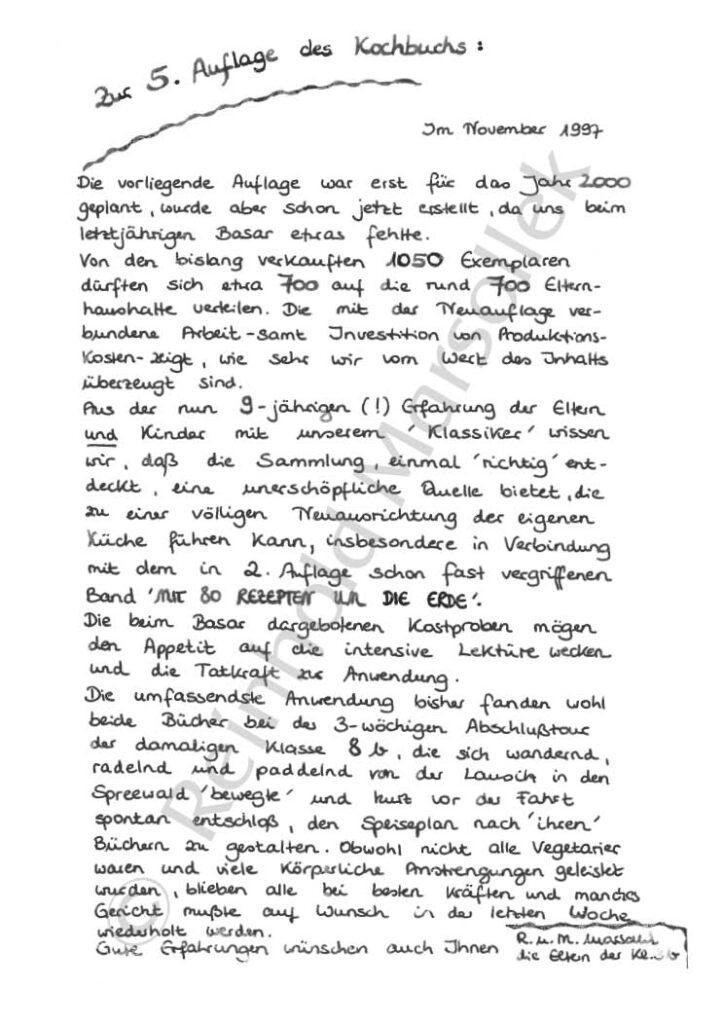 Zur 5. Auflage des Kochbuchs:
Im November 1997
Die vorliegende Auflage war erst für das Jahr 2000
geplant, wurde aber schon jetzt erstellt, da uns beim
letztjährigen Basar etwas fehlte.
Von den bislang verkauften 1050 Exemplaren
dürften sich etwa 700 auf die rund 700 Eltern-
haushalte verteilen. Die mit der Neuauflage ver-
bundene Arbeit - samt Investition von Produktions-
Kosten - zeigt, wie sehr wir vom Wert des Inhalts
überzeugt sind.
Aus der nun 9-jährigen (!) Erfahrung der Eltern
und Kinder mit unserem 'Klassiker' wissen
wir, daß die Sammlung, einmal 'richtig' ent-
deckt, eine unerschöpfliche Quelle bietet, die
zu einer völligen Neuausrichtung der eigenen
Küche führen kann, insbesondere in Verbindung
mit dem in 2. Auflage schon fast vergriffenen
Band 'MIT 80 REZEPTEN UM DIE ERDE'.
Die beim Basar dargebotenen Kostproben mögen
den Appetit auf die intensive Lektüre wecken
und die Tatkraft zur Anwendung.
Die umfassendste Anwendung bisher fanden wohl
beide Bücher bei der 3-wöchigen Abschlußtour
der damaligen Klasse 8b, die sich wandernd,
radelnd und paddelnd von der Lausitz in den
Spreewald 'bewegte' und kurz vor der Fahrt
spontan entschloß, den Speiseplan nach 'ihren'
Büchern zu gestalten. Obwohl nicht alle Vegetarier
waren und viele Körperliche Anstrengungen geleistet
wurden, blieben alle bei besten Kräften und manches
Gericht mußte auf Wunsch in der letzten Woche
wiederholt werden.
Gute Erfahrungen wünschen auch Ihnen R. u. M. Marsollek
die Eltern der Kl.
© Reinhold Marsollek